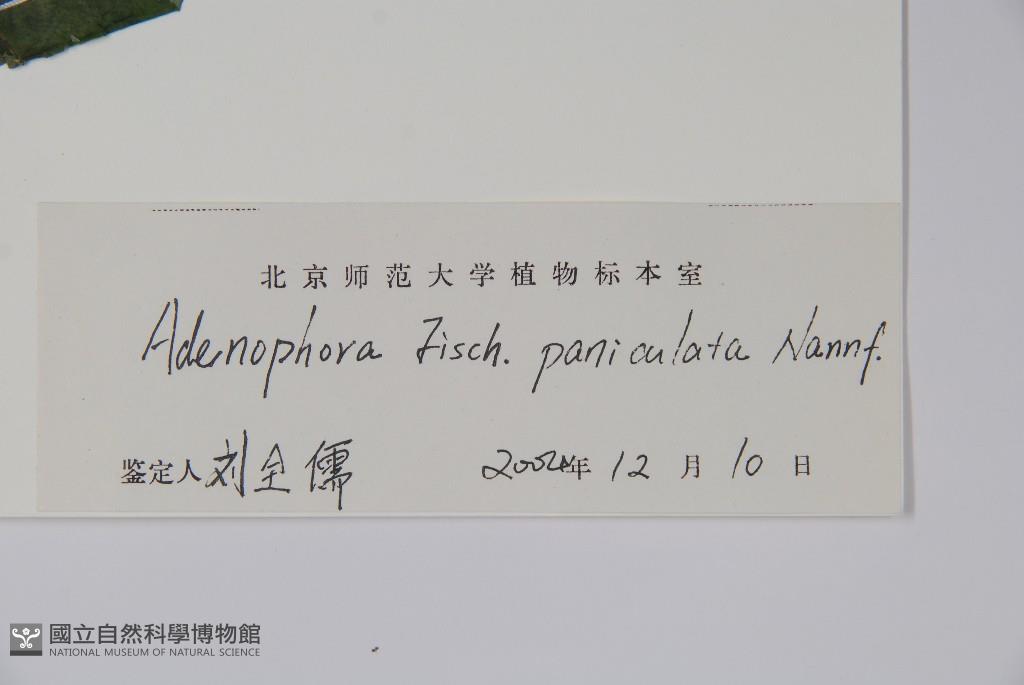 北京师范大学植物标本室
Adenophora Fisch. paniculata Nannf.
鉴定人 刘全儒 2004年 12 月 10 日
國立自然科學博物館
NATIONAL MUSEUM OF NATURAL SCIENCE